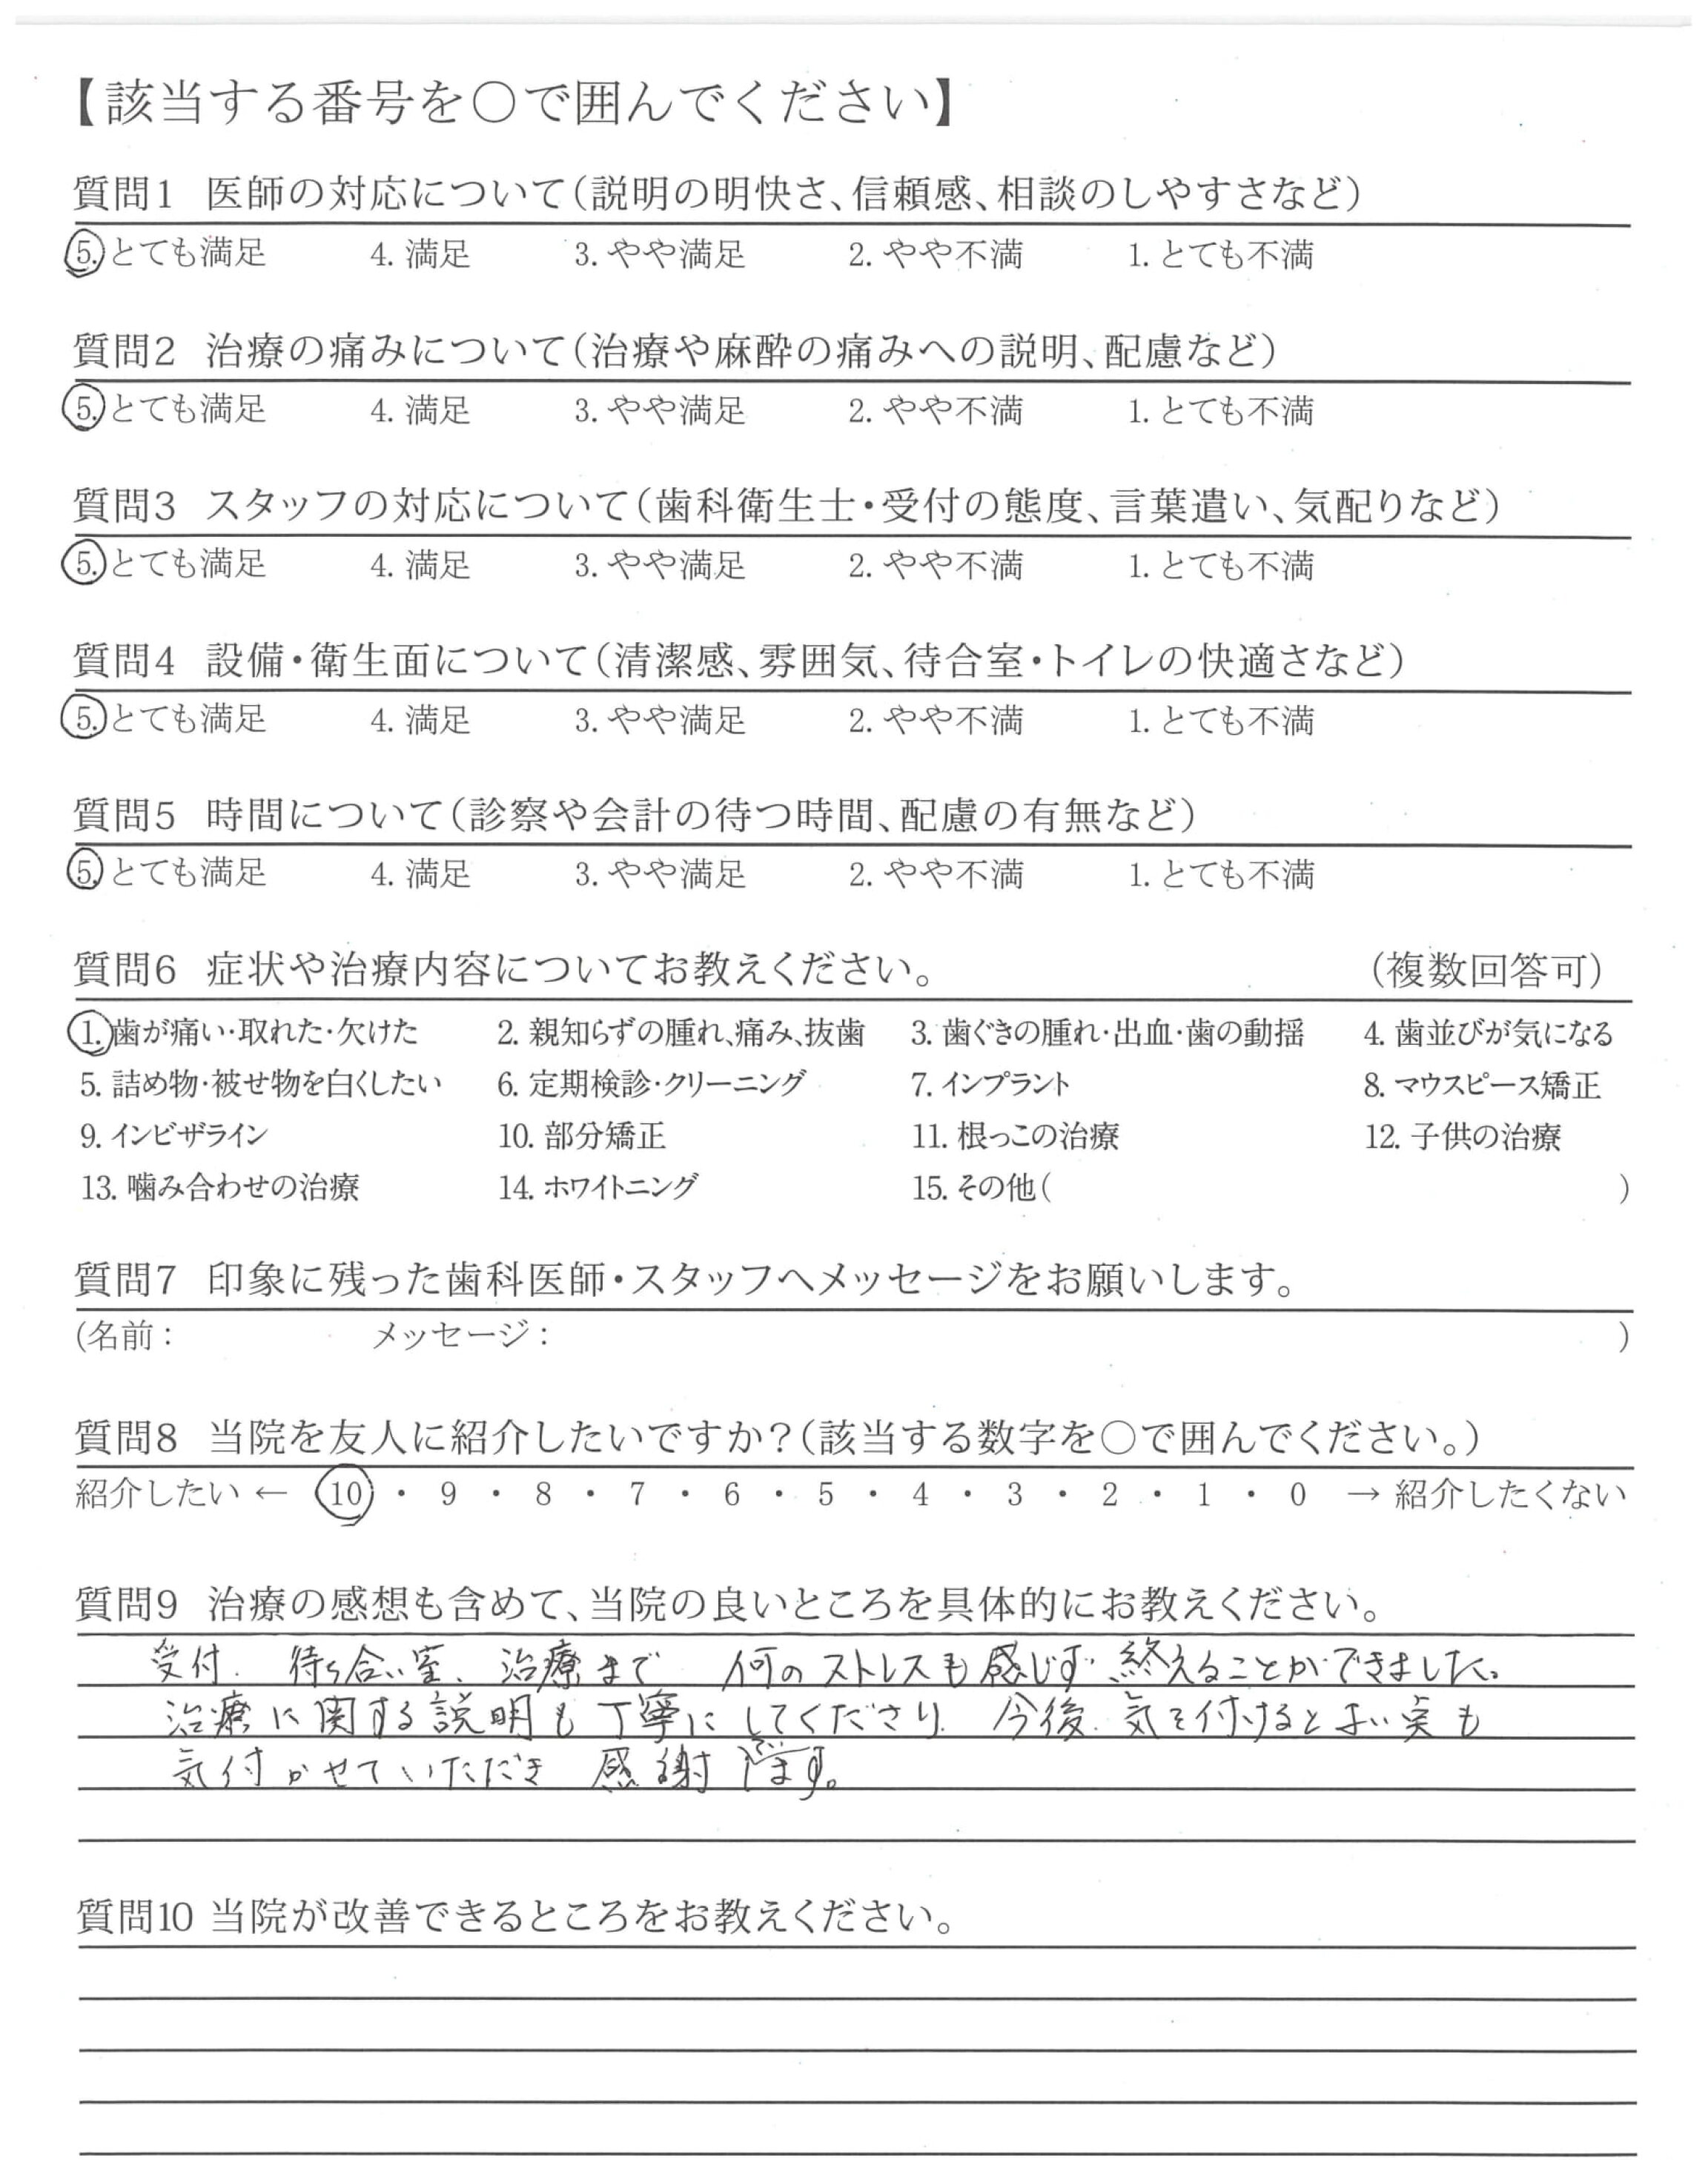 【該当する番号を〇で囲んでください】
質問1 医師の対応について(説明の明快さ、信頼感、相談のしやすさなど)
5. とても満足 4. 満足 3. やや満足 2. やや不満 1. とても不満
質問2 治療の痛みについて(治療や麻酔の痛みへの説明、配慮など)
5. とても満足 4. 満足 3. やや満足 2. やや不満 1. とても不満
質問3 スタッフの対応について(歯科衛生士・受付の態度、言葉遣い、気配りなど)
5. とても満足 4. 満足 3. やや満足 2. やや不満 1. とても不満
質問4 設備・衛生面について(清潔感、雰囲気、待合室・トイレの快適さなど)
5. とても満足 4. 満足 3. やや満足 2. やや不満 1. とても不満
質問5 時間について(診察や会計の待つ時間、配慮の有無など)
5. とても満足 4. 満足 3. やや満足 2. やや不満 1. とても不満
質問6 症状や治療内容についてお教えください。 (複数回答可)
1. 歯が痛い・取れた・欠けた 2. 親知らずの腫れ、痛み、抜歯 3. 歯ぐきの腫れ・出血・歯の動揺 4. 歯並びが気になる
5. 詰め物・被せ物を白くしたい 6. 定期検診・クリーニング 7. インプラント 8. マウスピース矯正
9. インビザライン 10. 部分矯正 11. 根っこの治療 12. 子供の治療
13. 噛み合わせの治療 14. ホワイトニング 15. その他( )
質問7 印象に残った歯科医師・スタッフへメッセージをお願いします。
(名前: メッセージ: )
質問8 当院を友人に紹介したいですか?(該当する数字を〇で囲んでください。)
紹介したい ← 10 ・ 9 ・ 8 ・ 7 ・ 6 ・ 5 ・ 4 ・ 3 ・ 2 ・ 1 ・ 0 → 紹介したくない
質問9 治療の感想も含めて、当院の良いところを具体的にお教えください。
受付、待ち合い室、治療まで 何のストレスも感じず 終えることができました。
治療に関する説明も丁寧にしてくださり、今後、気を付けるとよい点も
気付かせていただき 感謝です。
質問10 当院が改善できるところをお教えください。